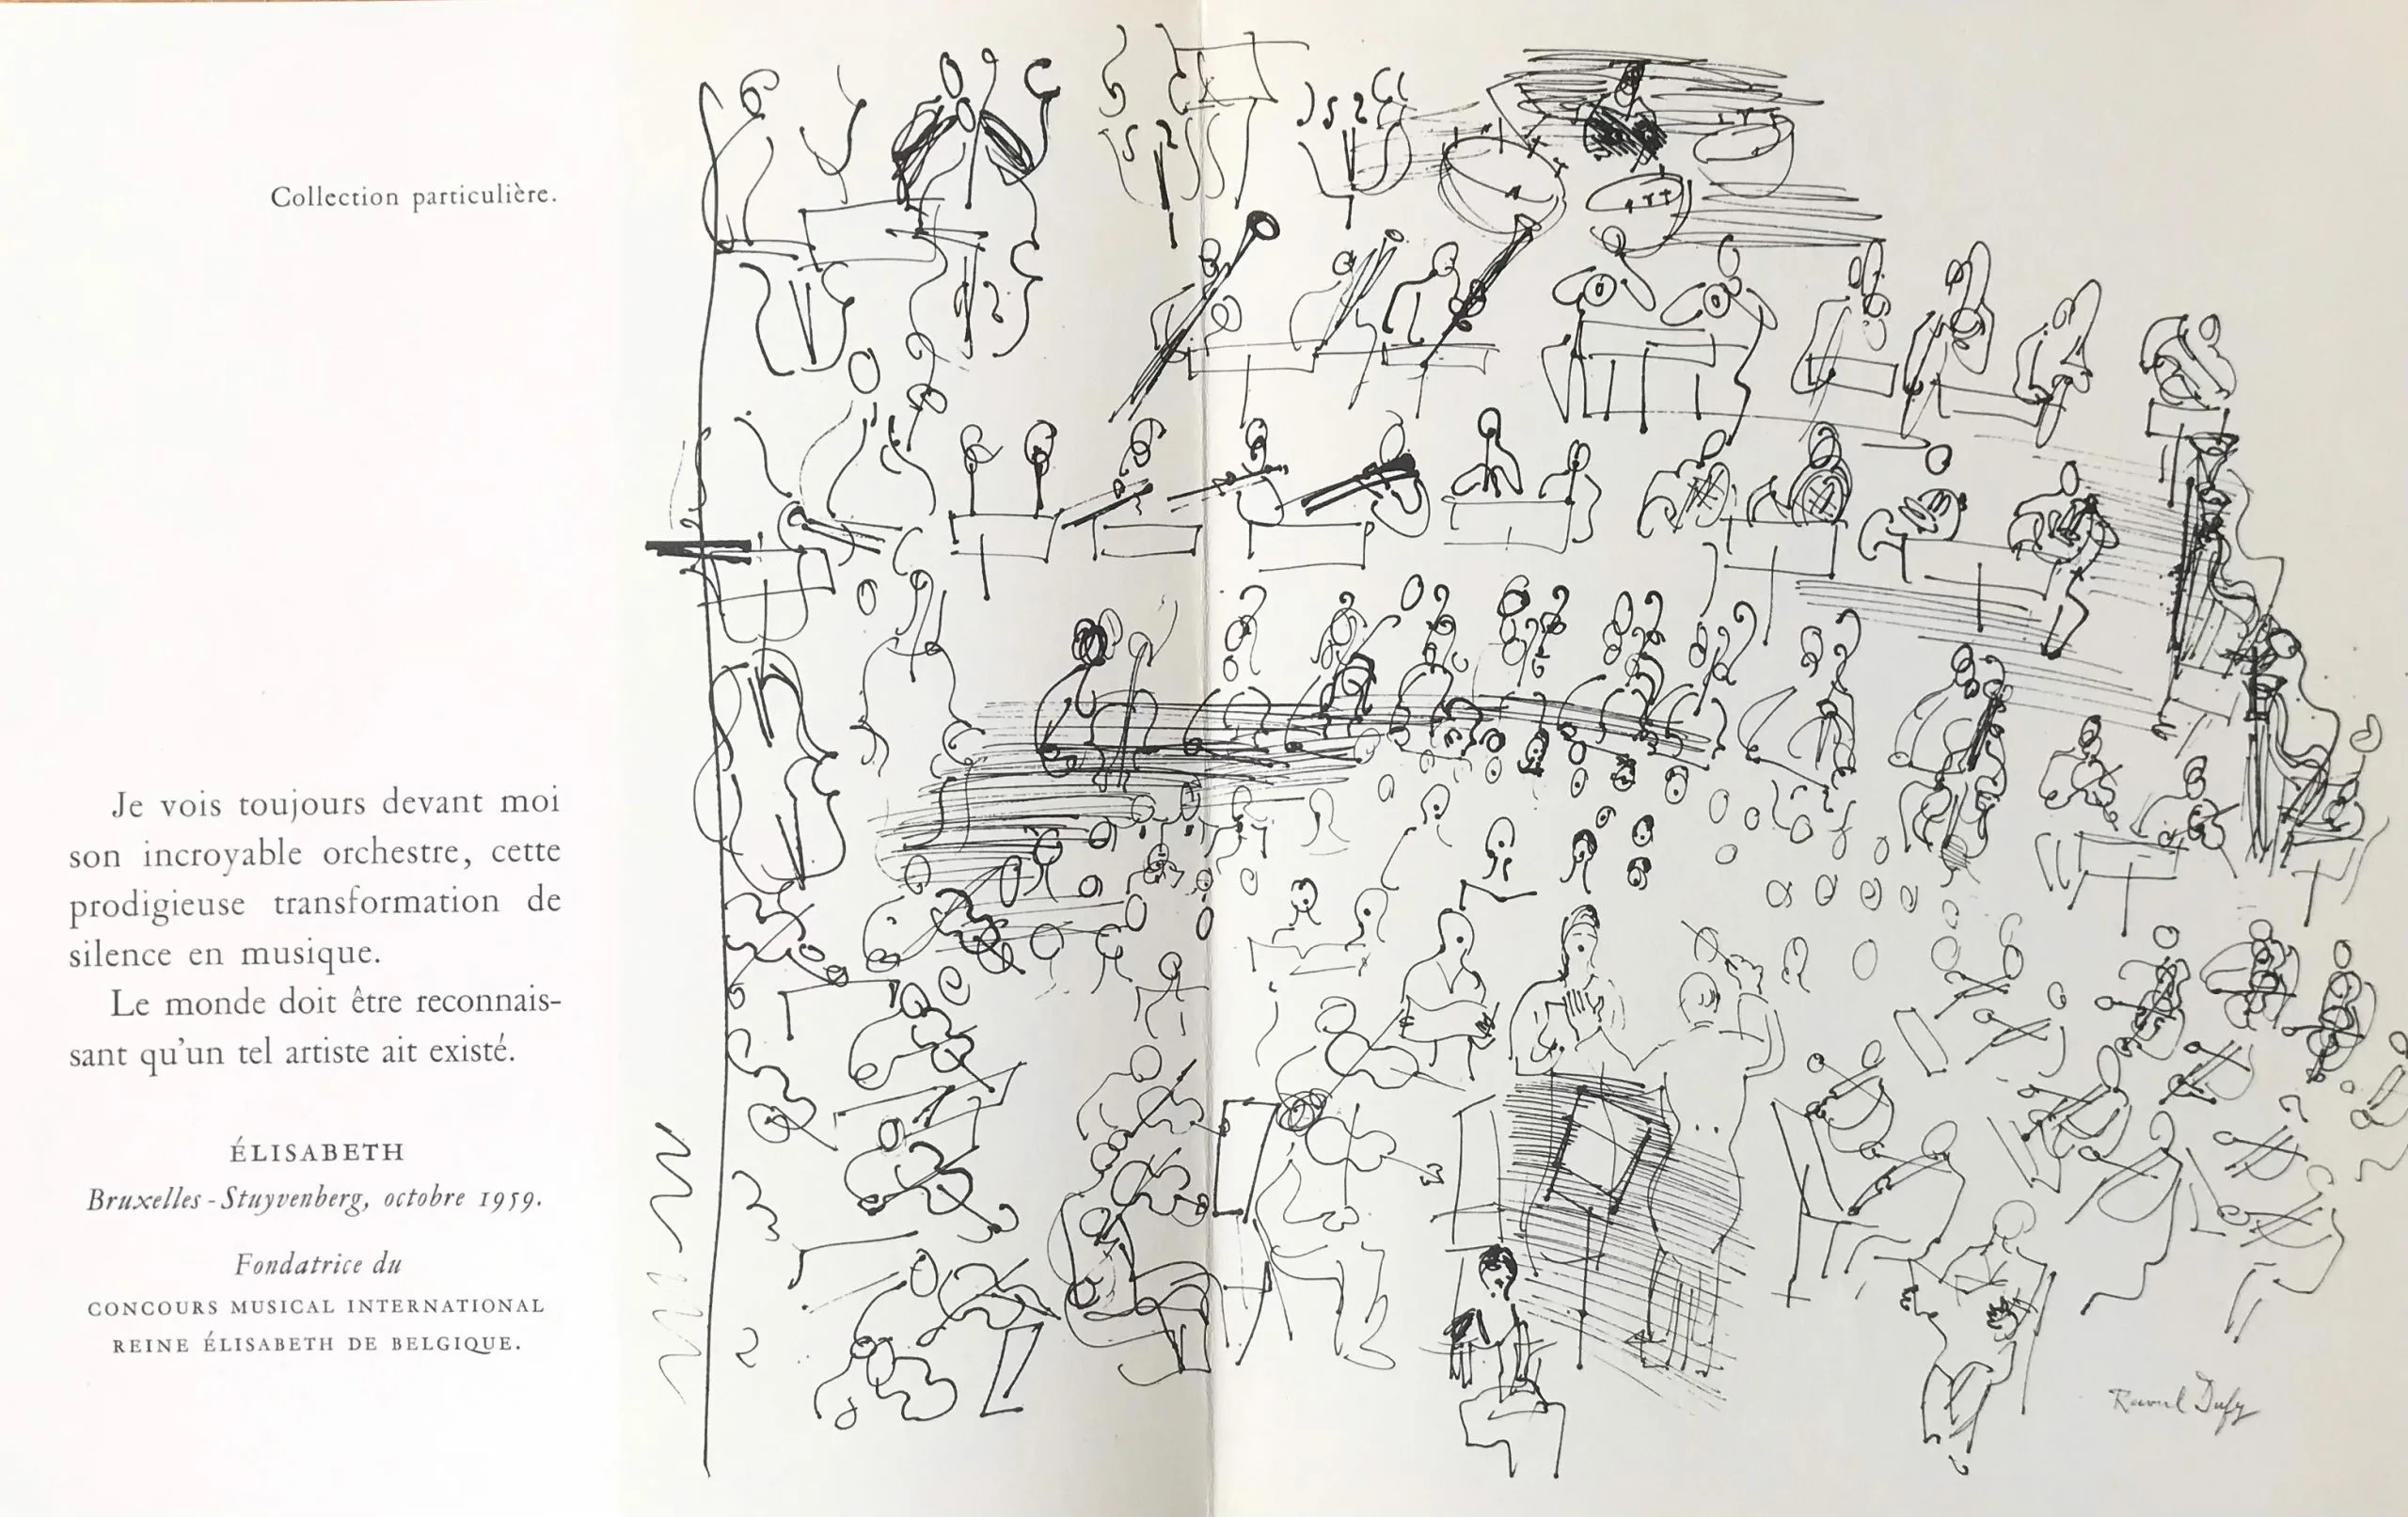 Collection particulière.
Je vois toujours devant moi
son incroyable orchestre, cette
prodigieuse transformation de
silence en musique.
Le monde doit être reconnais-
sant qu'un tel artiste ait existé.
ÉLISABETH
Bruxelles-Stuyvenberg, octobre 1959.
Fondatrice du
CONCOURS MUSICAL INTERNATIONAL
REINE ÉLISABETH DE BELGIQUE.
Raoul Dufy